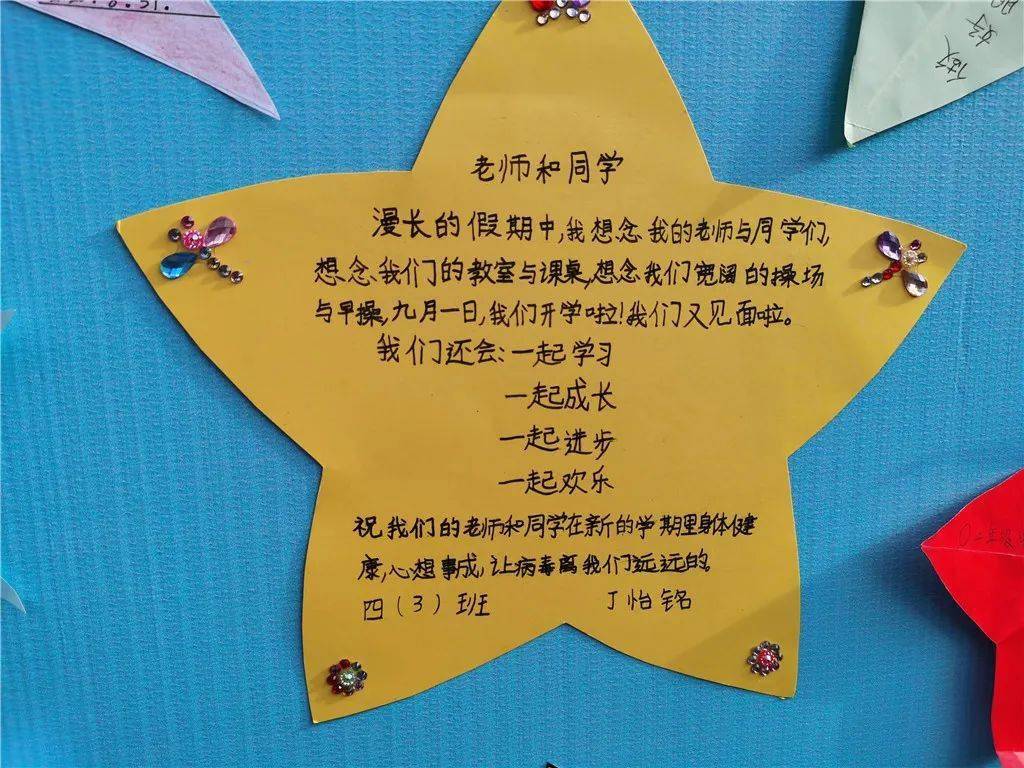 老师和同学
漫长的假期中,我想念我的老师与同学们,
想念我们的教室与课桌,想念我们宽阔的操场
与早操,九月一日,我们开学啦!我们又见面啦。
我们还会:一起学习
一起成长
一起进步
一起欢乐
祝我们的老师和同学在新的学期里身体健
康,心想事成,让病毒离我们远远的。
四(3)班 丁怡铭